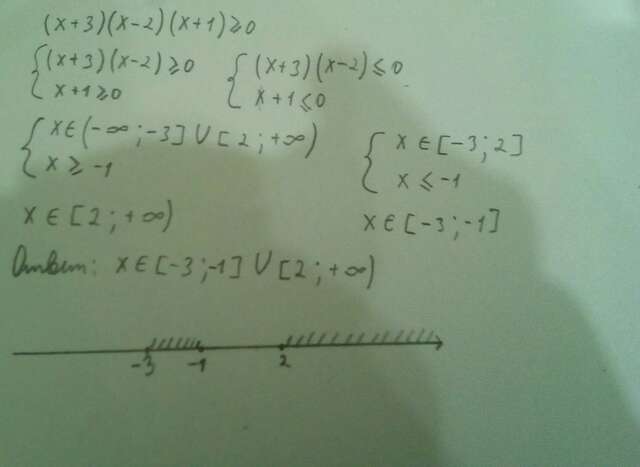 (x+3)(x-2)(x+1)≥0
{(x+3)(x-2)≥0 {(x+3)(x-2)≤0
x+1≥0 x+1≤0
{x∈(-∞;-3]∪[2;+∞) {x∈[-3;2]
x≥-1 x≤-1
x∈[2;+∞) x∈[-3;-1]
Ответ: x∈[-3;-1]∪[2;+∞)
-3 -1 2